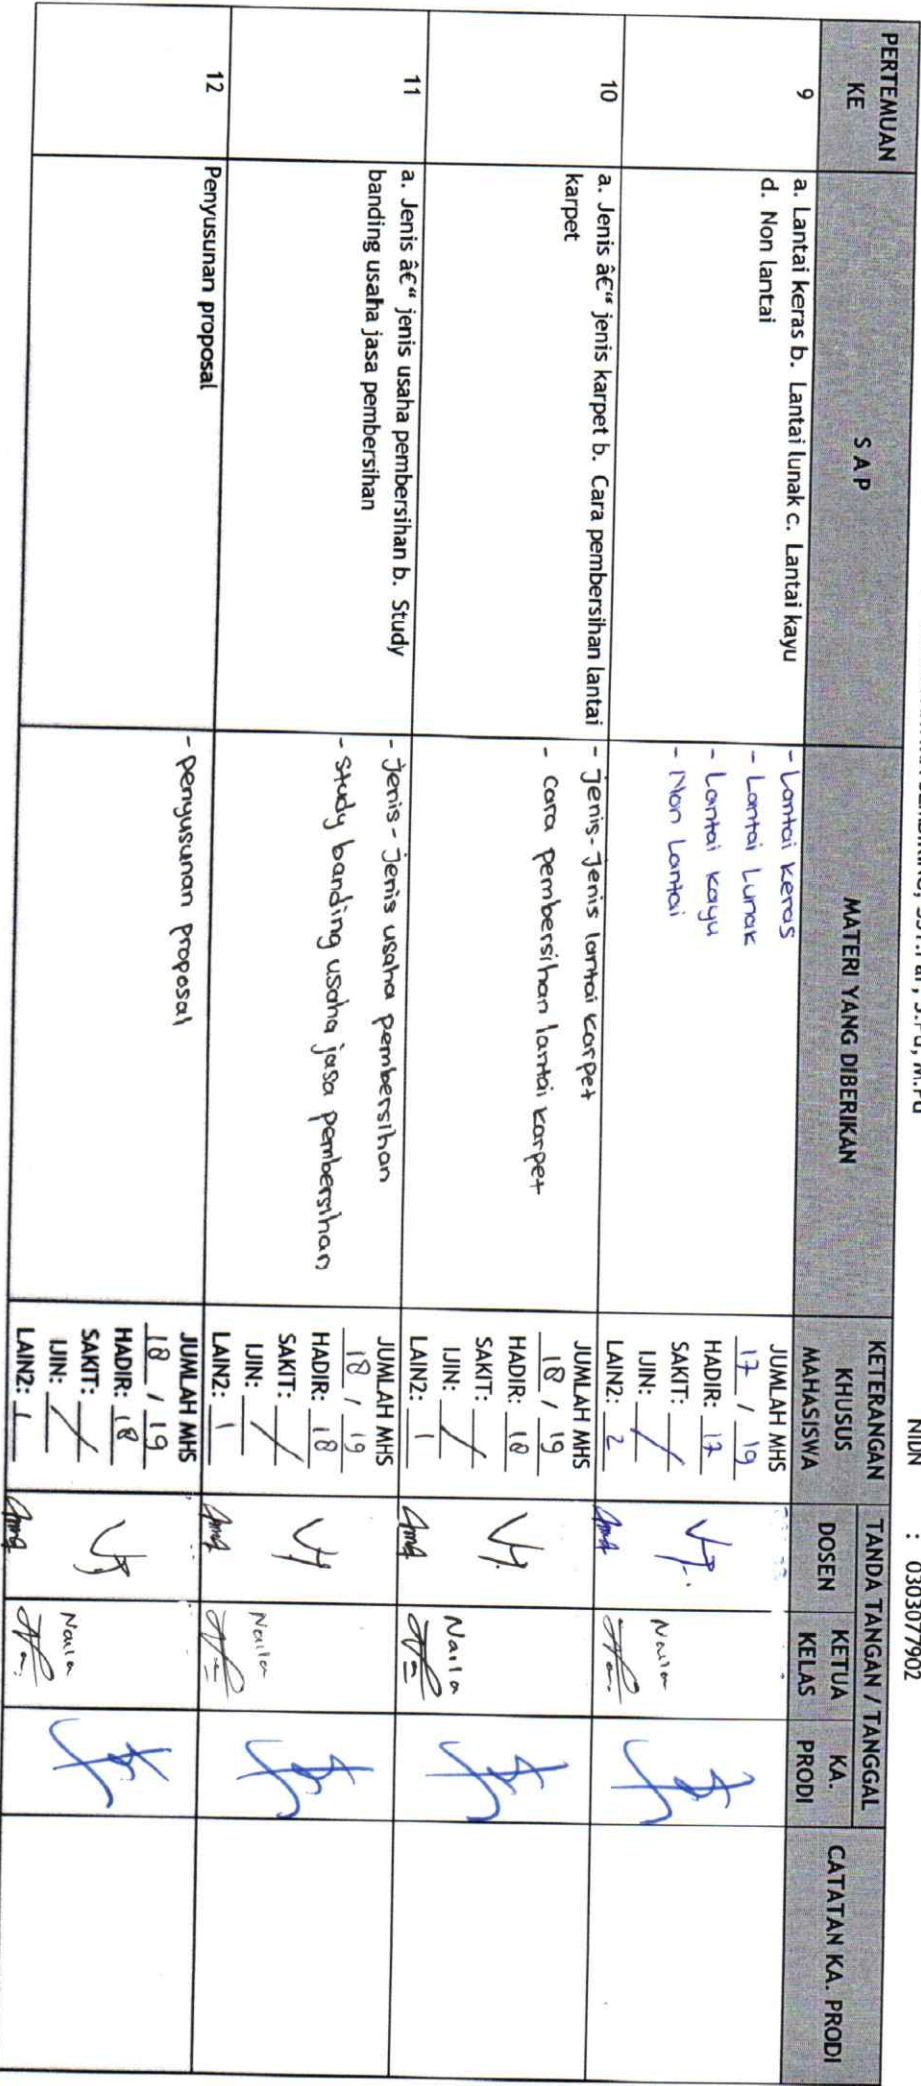 S.Pd, M.Pd
NIDN : 0303077902
PERTEMUAN KE
S A P
MATERI YANG DIBERIKAN
KETERANGAN KHUSUS MAHASISWA
TANDA TANGAN / TANGGAL
DOSEN
KETUA KELAS
KA. PRODI
CATATAN KA. PRODI
9
a. Lantai keras b. Lantai lunak c. Lantai kayu
d. Non lantai
- Lantai Keras
- Lantai Lunak
- Lantai Kayu
- Non Lantai
JUMLAH MHS
17 / 19
HADIR: 17
SAKIT: /
IJIN:
LAIN2: 2
Naila
10
a. Jenis â€“ jenis karpet b. Cara pembersihan lantai
karpet
- Jenis-Jenis lantai karpet
- Cara pembersihan lantai karpet
JUMLAH MHS
18 / 19
HADIR: 18
SAKIT: /
IJIN:
LAIN2: 1
Naila
11
a. Jenis â€“ jenis usaha pembersihan b. Study
banding usaha jasa pembersihan
- Jenis-Jenis usaha pembersihan
- Study banding usaha jasa pembersihan
JUMLAH MHS
18 / 19
HADIR: 18
SAKIT: /
IJIN:
LAIN2: 1
Naila
12
Penyusunan proposal
- Penyusunan Proposal
JUMLAH MHS
18 / 19
HADIR: 18
SAKIT: /
IJIN:
LAIN2: 1
Naila